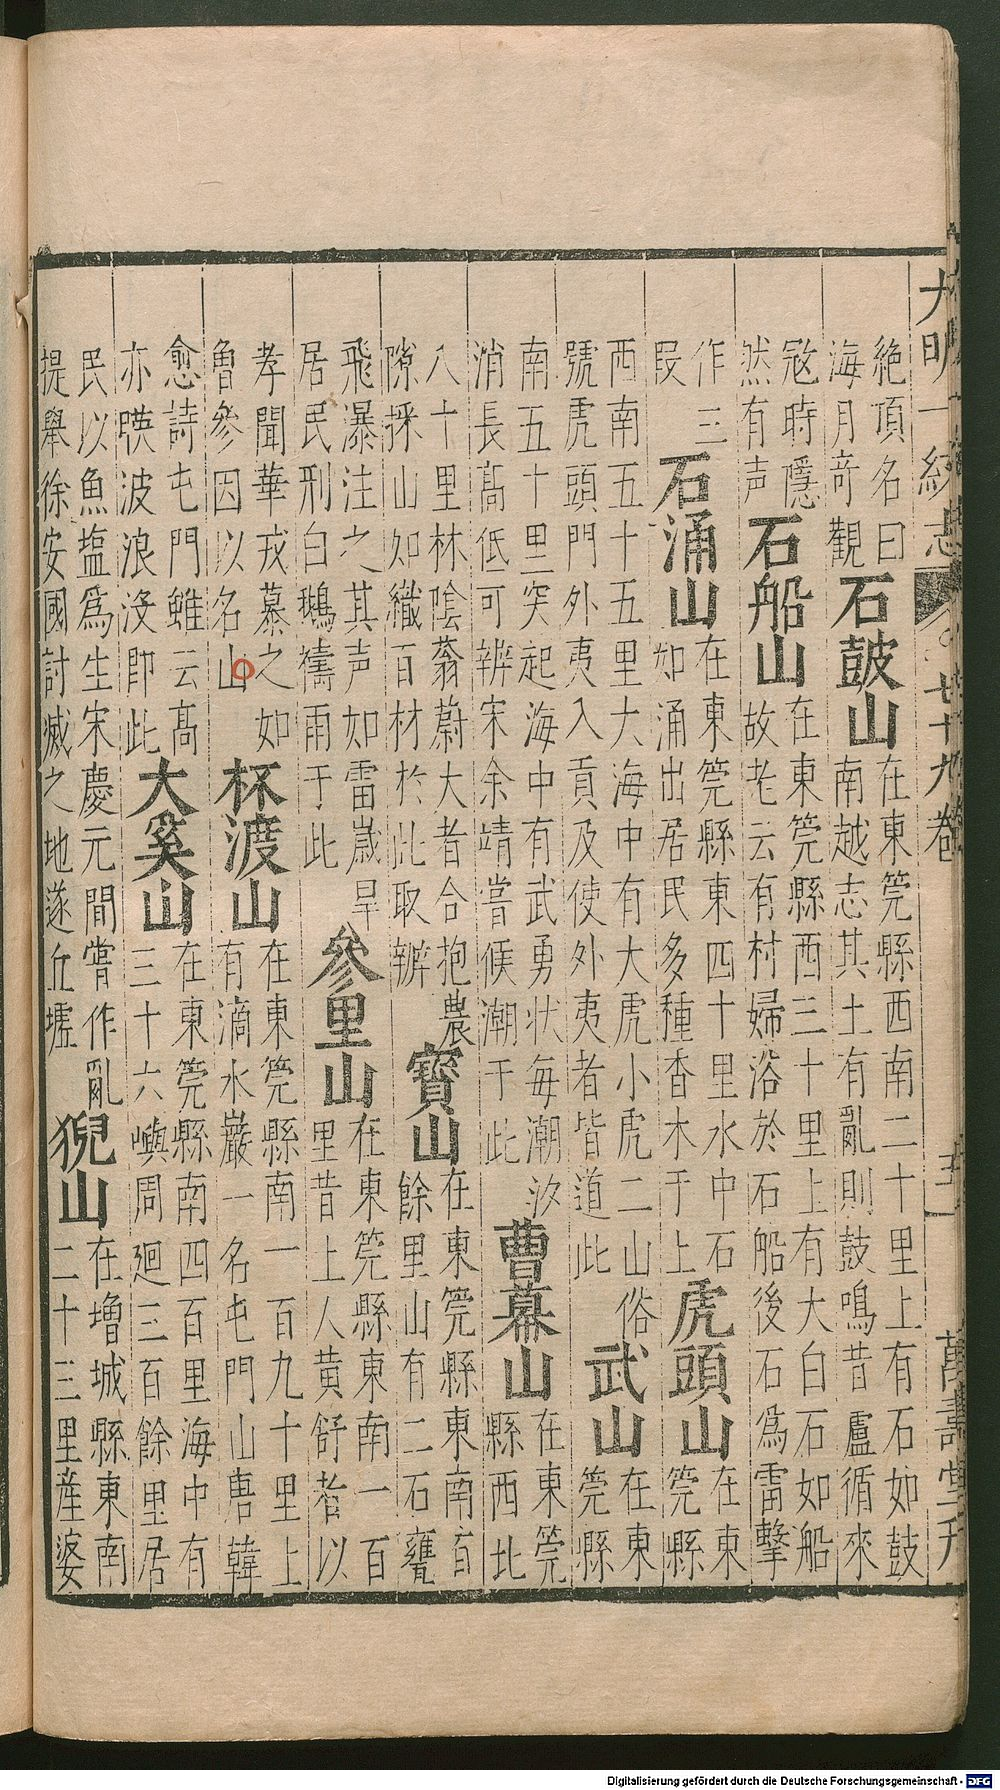 大明一統志 七十九卷 五 萬壽堂刋
絶頂名曰
海月奇觀
石皷山
在東筦縣西南二十里上有石如鼓
南越志其土有亂則鼓鳴昔盧循來
寇時隱
然有声
石船山
在東筦縣西三十里上有大白石如船
故老云有村婦浴於石船後石爲雷擊
作三
叚
石涌山
在東筦縣東四十里水中石
如涌出居民多種香木于上
虎頭山
在東
筦縣
西南五十五里大海中有大虎小虎二山俗
號虎頭門外夷入貢及使外夷者皆道此
武山
在東
筦縣
南五十里突起海中有武勇狀每潮汐
消長髙低可辨宋余靖嘗候潮于此
曹幕山
在東筦
縣西北
八十里林陰蓊蔚大者合抱農
隙採山如纖百材於此取辦
寳山
在東筦縣東南百
餘里山有二石甕
飛瀑注之其声如雷歲旱
居民刑白鵝禱雨于此
參里山
在東筦縣東南一百
里昔上人黄舒者以
孝聞華戎慕之如
魯參因以名山
杯渡山
在東筦縣南一百九十里上
有滴水巖一名屯門山唐韓
愈詩屯門雖云髙
亦暎波浪没即此
大奚山
在東筦縣南四百里海中有
三十六嶼周廻三百餘里居
民以魚塩爲生宋慶元間嘗作亂
提舉徐安國討滅之地遂丘墟
猊山
在增城縣東南
二十三里産婆
Digitalisierung gefördert durch die Deutsche Forschungsgemeinschaft - DFG